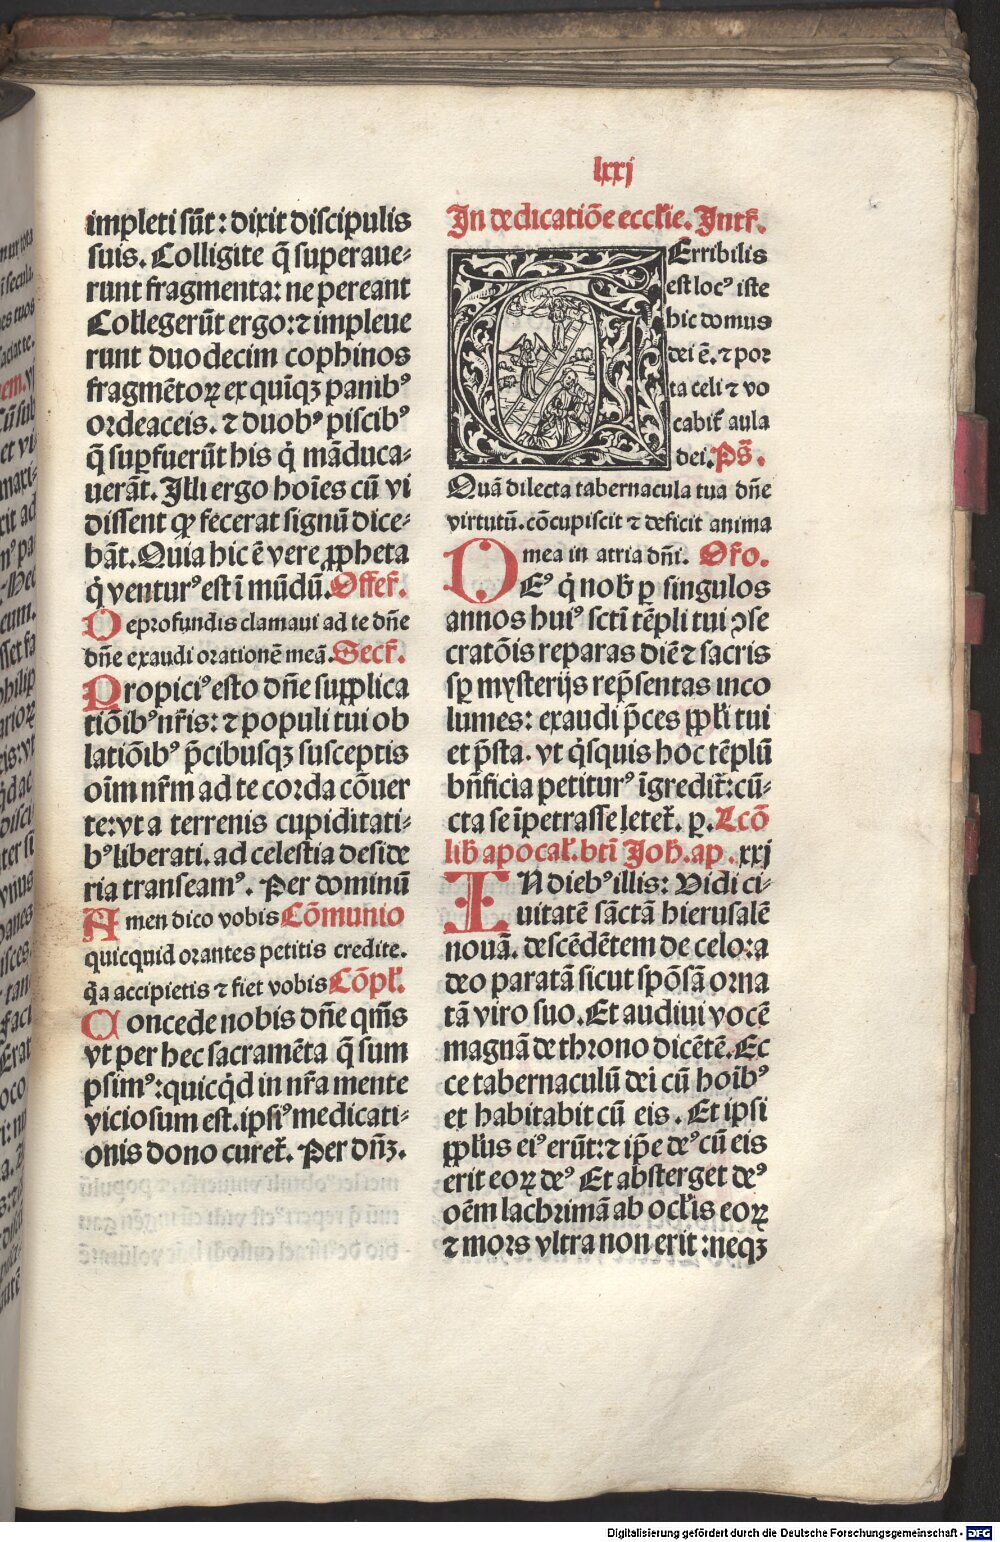 lxxj
impleti sūt: dixit discipulis
suis. Colligite q̄ superaue-
runt fragmenta: ne pereant
Collegerūt ergo: ⁊ impleue
runt duodecim cophinos
fragmētoꝝ ex quīqꝫ panibꝰ
ordeaceis. ⁊ duobꝰ piscibꝰ
q̄ suꝑfuerūt his q̇ māduca-
uerāt. Illi ergo hoīes cū vi
dissent ꝙ fecerat signū dice-
bāt. Quia hic ē vere ꝓpheta
q̇ venturꝰ est ī mūdū. Offer̄.
De profundis clamaui ad te dn̄e
dn̄e exaudi orationē meā. Secr̄.
Propiciꝰ esto dn̄e supplica
tiōibꝰ nr̄is: ⁊ populi tui ob
latiōibꝰ p̄cibusqꝫ susceptis
oīm nr̄m ad te corda cōuer
te: vt a terrenis cupiditati-
bꝰ liberati. ad celestia deside
ria transeamꝰ. Per dominū
Amen dico vobis Cōmunio
quicquid orantes petitis credite.
q̄a accipietis ⁊ fiet vobis Cōpl̄.
Concede nobis dn̄e qm̄s
vt per hec sacramēta q̄ sum
psimꝰ: quicq̇d in nr̄a mente
viciosum est. ipsiꝰ medicati-
onis dono curet̄. Per dn̄ꝫ.
In dedicatiōe eccl̄ie. Intr̄.
TErribilis
est locꝰ iste
hic domus
dei ē. ⁊ por
ta celi ⁊ vo
cabit̄ aula
dei. Ps̄.
Quā dilecta tabernacula tua dn̄e
virtutū. cōcupiscit ⁊ deficit anima
mea in atria dn̄i. Or̄o.
DEꝰ q̇ nob̄ ꝑ singulos
annos huiꝰ sctī tēpli tui ꝯse
cratōis reparas diē ⁊ sacris
sꝑ mysterijs rep̄sentas inco
lumes: exaudi p̄ces ppl̄i tui
et p̄sta. vt q̇squis hoc tēplū
bn̄ficia petiturꝰ īgredit̄: cū-
cta se īpetrasse letet̄. ꝑ. Lcō
lib̄ apocal̄. btī Joh̄. ap. xxj
IN diebꝰ illis: Vidi ci-
uitatē sāctā hierusalē
nouā. descēdētem de celo: a
deo paratā sicut spōsā orna
tā viro suo. Et audiui vocē
magnā de throno dicētē. Ec
ce tabernaculū dei cū hoībꝰ
et habitabit cū eis. Et ipsi
ppl̄us eiꝰ erūt: ⁊ ip̄e deꝰ cū eis
erit eoꝝ deꝰ Et absterget deꝰ
oēm lachrimā ab ocl̄is eoꝝ
⁊ mors vltra non erit: neqꝫ
Digitalisierung gefördert durch die Deutsche Forschungsgemeinschaft - DFG